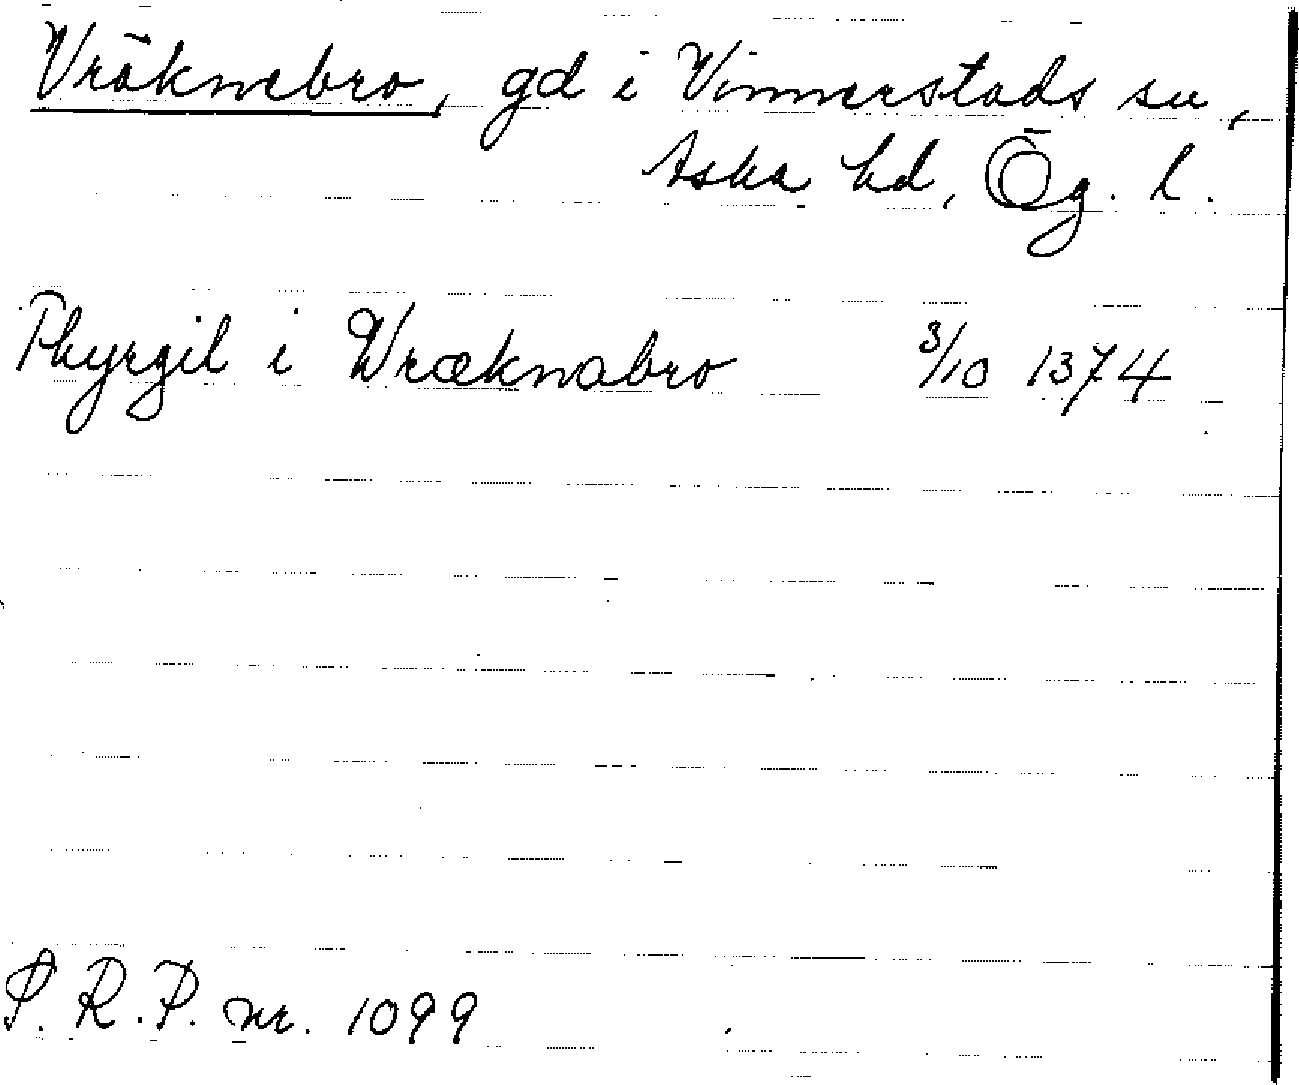 Vräknebro, gd i Vinnerstads sn,
Aska hd, Ög. l.
Thyrgil i Wræknabro 3/10 1374
P. R. P. nr. 1099